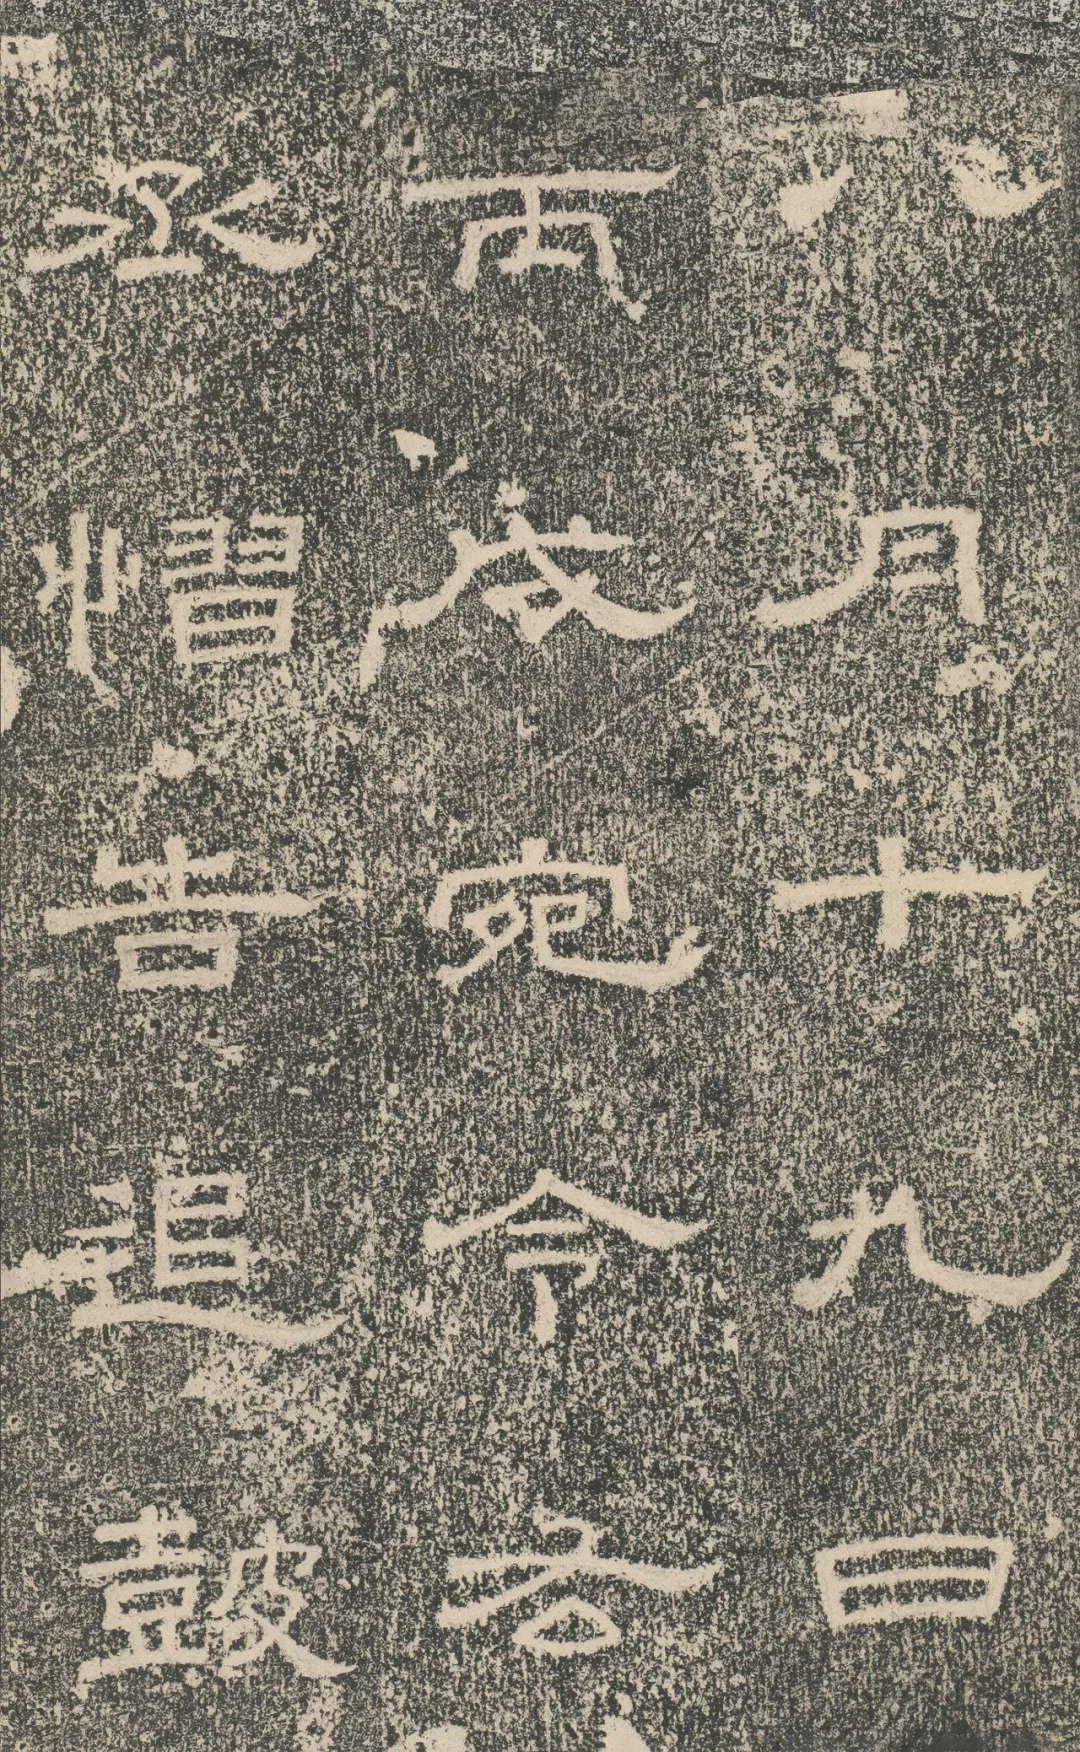 八月十九日
丙戌宛令右
丞慴告追皷